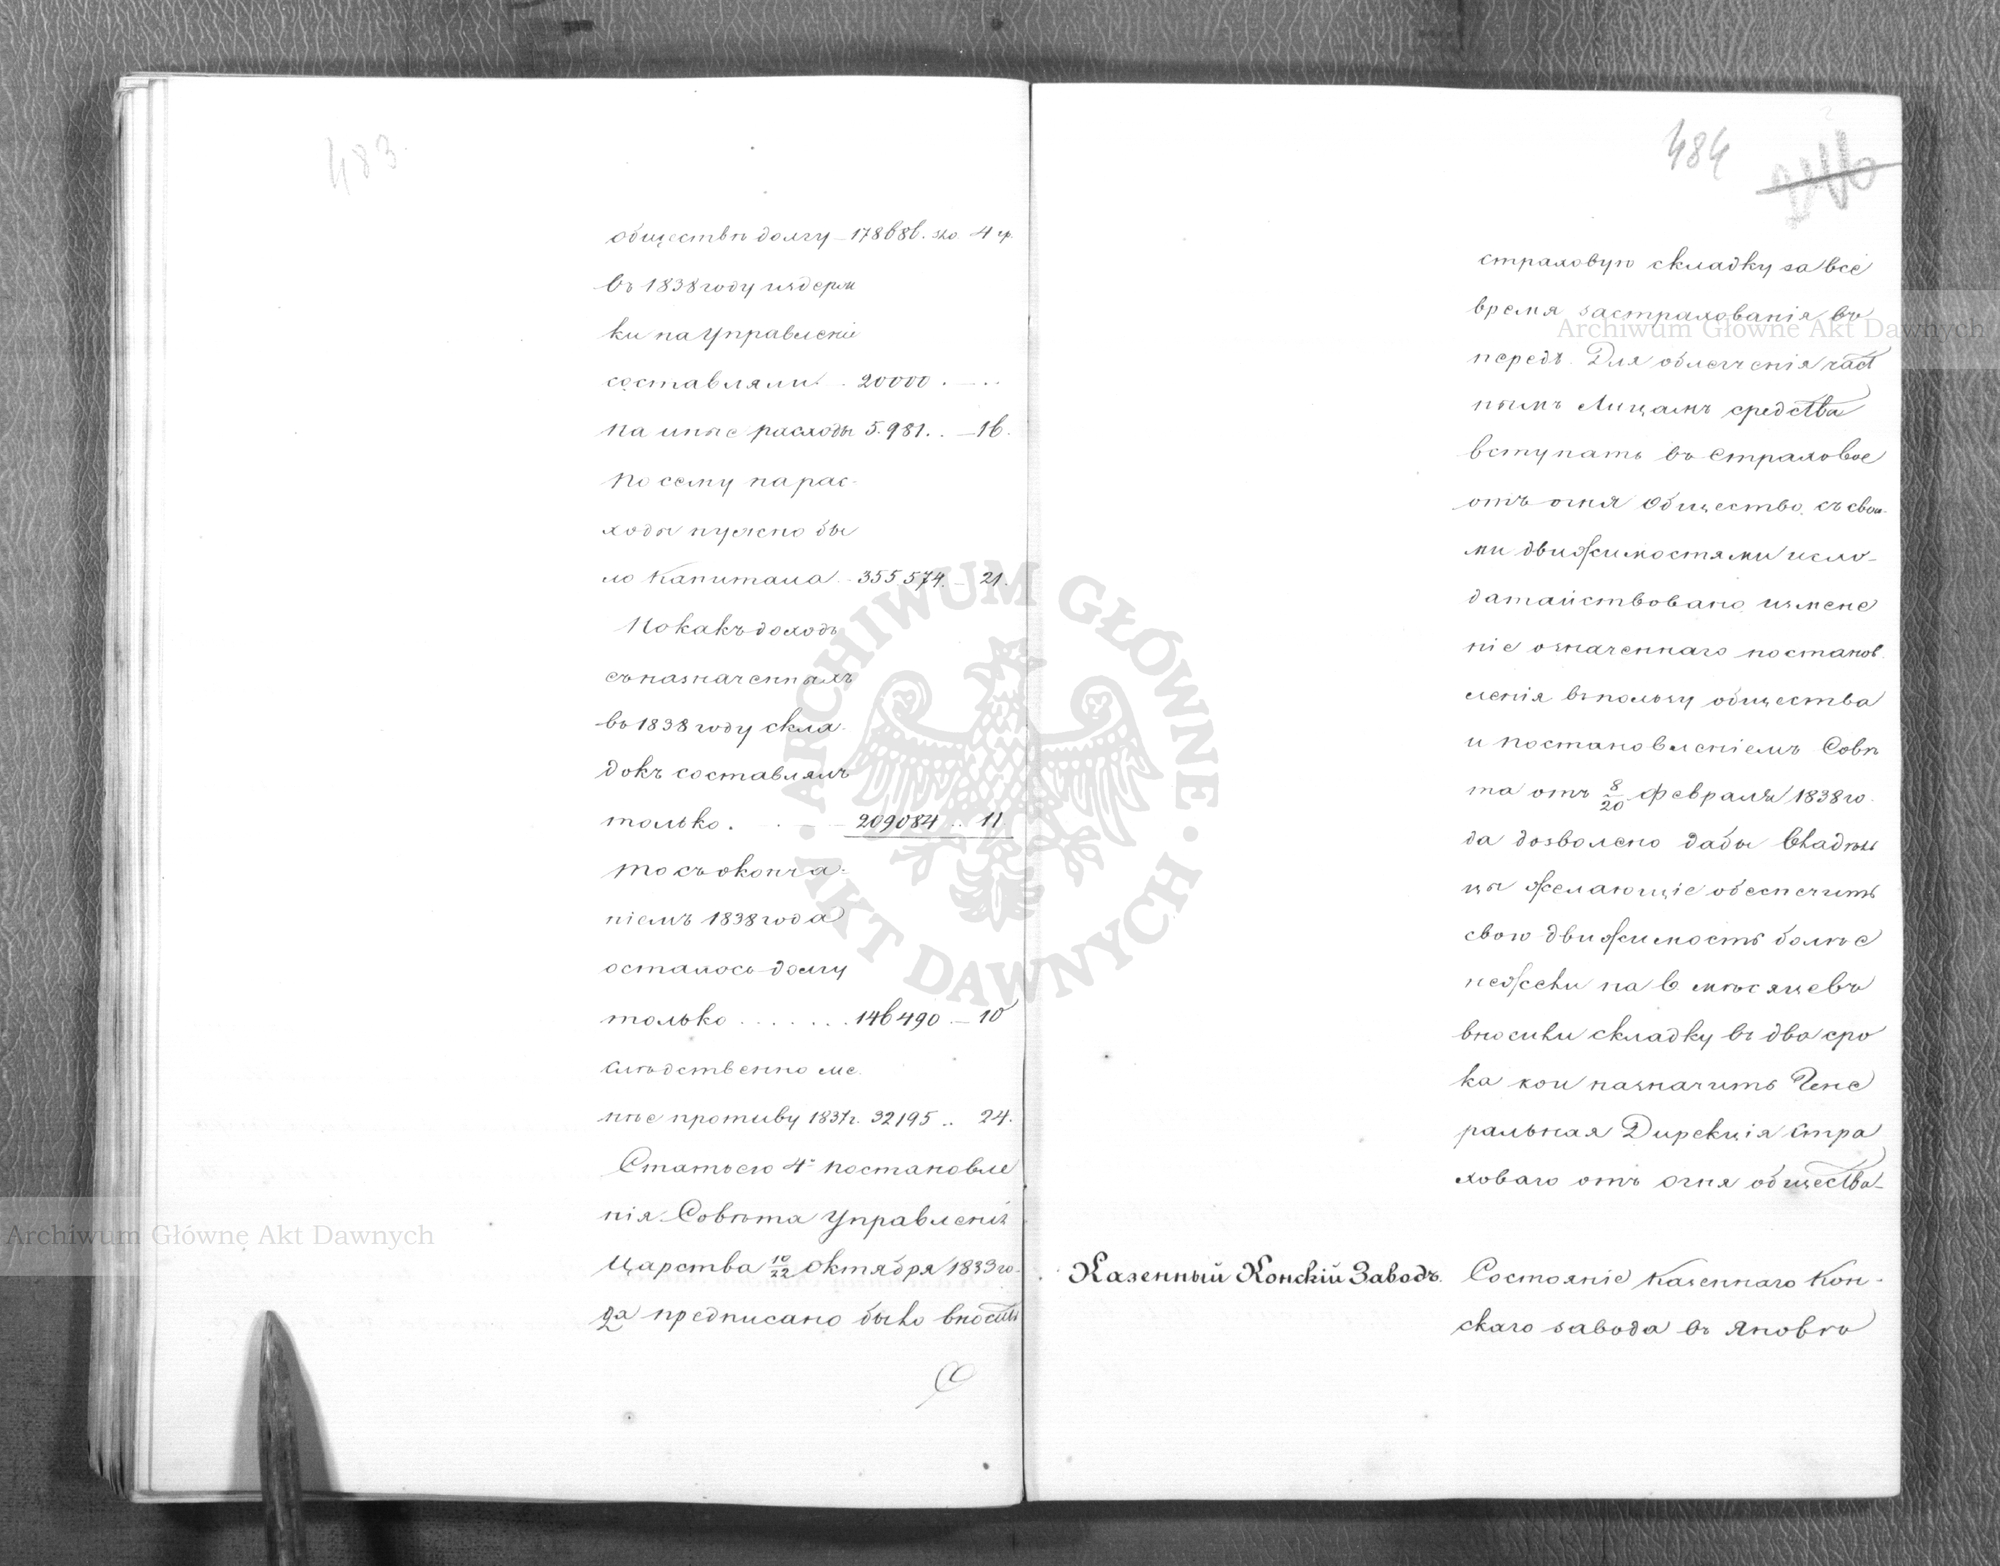 483.
обществѣ долгу – 178686. зло. 4 гр.
въ 1838 году издерж
ки на Управленіе
составляли . 20000 . – . .
на иные расходы 5.981 . . – 16.
Посему на рас-
ходы нужно бы
ло Капитала . 355.574. – 21.
Но какъ доходъ
съ назначенныхъ
въ 1838 году скла-
докъ составлялъ
только . . – 209084 . . 11
то съ оконча-
ніемъ 1838 года
осталось долгу
только . . . . . . . 146490 . – 10
слѣдственно ме.
нѣе противу 1837 г. 32195 . . 24.
Статьею 4ю постановле
нія Совѣта Управленія
Царства 10/22 Октября 1833 го-
да предписано было вносить
484
страховую складку за всё
время застрахованія въ
передъ. Для облегченія част
нымъ Лицамъ средства
вступать въ Страховое
отъ огня Общество, съ свои-
ми движимостями исхо-
датайствовано измене
ніе означеннаго постанов
ленія въ пользу общества
и постановленіемъ Совѣ
та отъ 8/20 Февраля 1838 го.
да дозволено дабы Владѣль
цы желающіе обеспечить
свою движимость болѣе
нежели на 6 мѣсяцевъ
вносили складку въ два сро
ка кои назначитъ Гене
ральная Дирекція Стра
ховаго отъ огня общества.
Казенный Конскій Заводъ.
Состояніе Казеннаго Кон-
скаго завода въ Яновѣ
Archiwum Główne Akt Dawnych
Archiwum Główne Akt Dawnych
· ARCHIWUM GŁÓWNE · AKT DAWNYCH